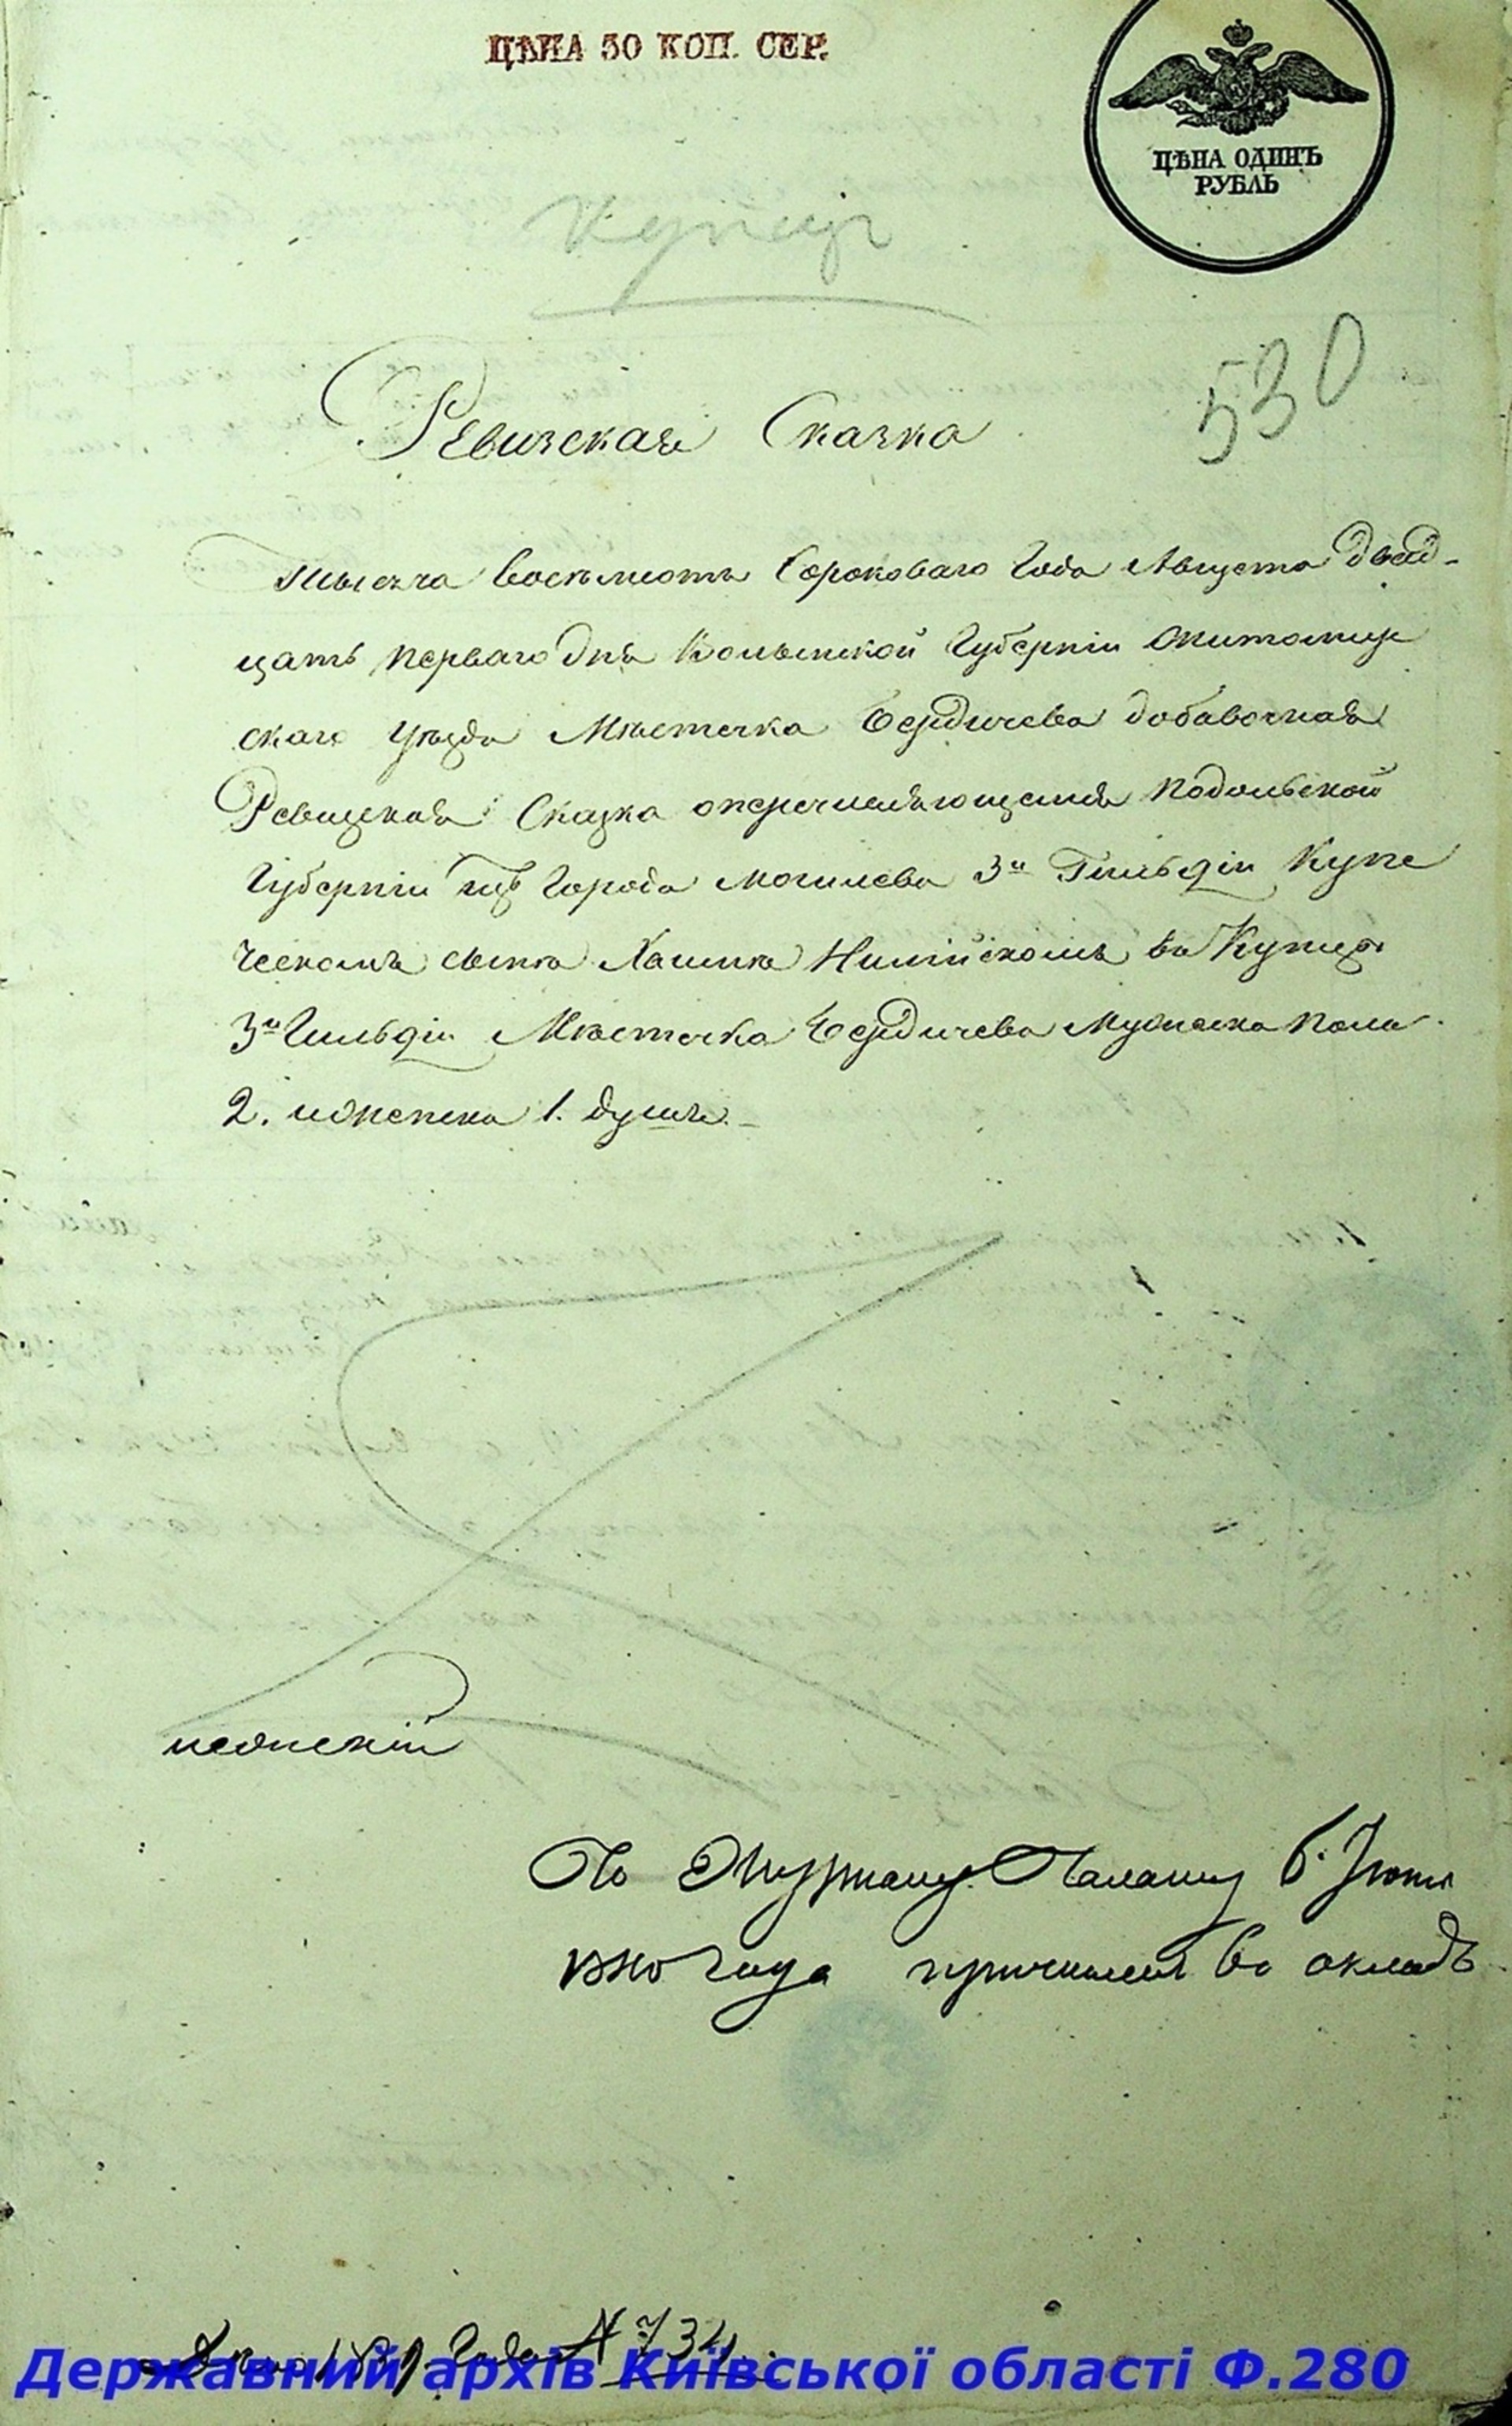 ЦѢНА 30 КОП. СЕР.
ЦѢНА ОДИНЪ
РУБЛЬ
Купцы
530
Ревизская Сказка
Тысяча восемьсотъ Сороковаго Года Августа двад-
цать перваго дня Волынской Губерніи Житомир
скаго Уѣзда Мѣстечка Бердичева добавочная
Ревизская Сказка о перечисляющемся Подольской
Губерніи изъ Города Могилева 3й Гильдіи Купе
ческомъ сынѣ въ Купцы
3й Гильдіи Мѣстечка Бердичева Мужеска пола
2. и женска 1. душѣ.
и женскій
По Журналу Палаты 6. Іюня
1840 года причислен во окладъ
1839 Года № 734
Державний архів Київської області Ф.280